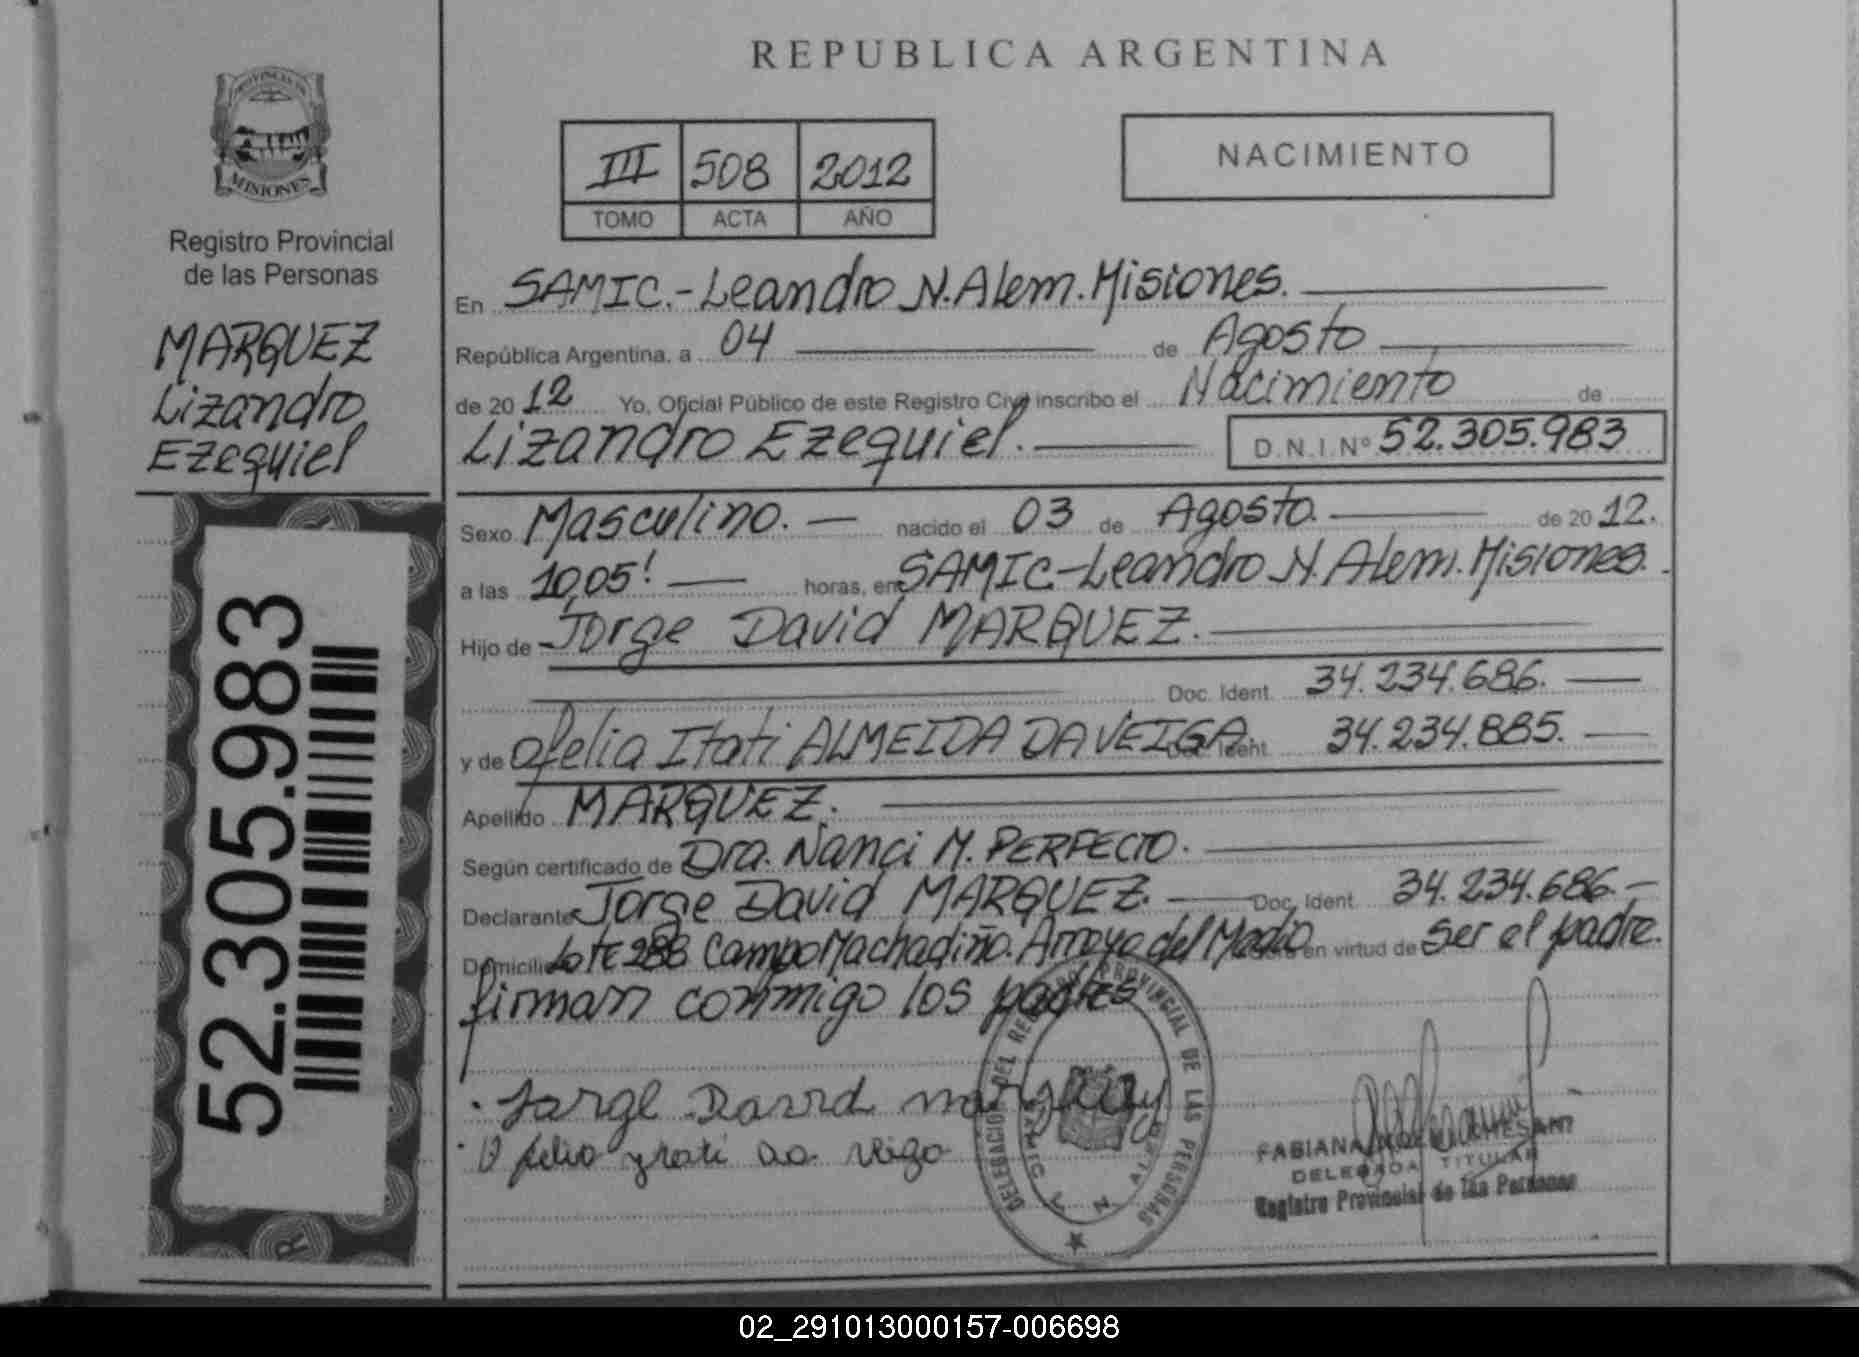 REPUBLICA ARGENTINA
PROVINCIA DE
MISIONES
Registro Provincial
de las Personas
MARQUEZ
Lizandro
Ezequiel
52.305.983
III 508 2012
TOMO ACTA AÑO
NACIMIENTO
En SAMIC.-Leandro N. Alem. Misiones.
República Argentina, a 04 de Agosto
de 2012 Yo, Oficial Público de este Registro Civil inscribo el Nacimiento de
Lizandro Ezequiel. D.N.I.Nº 52.305.983
Sexo Masculino. nacido el 03 de Agosto. de 2012.
a las 10,05! horas, en SAMIC-Leandro N. Alem. Misiones.
Hijo de Jorge David MARQUEZ.
Doc. Ident. 34.234.686.
y de Ofelia Itati ALMEIDA DA VEIGA. Doc. Ident. 34.234.885.
Apellido MARQUEZ.
Según certificado de Dra. Nanci M. PERFECTO.
Declarante Jorge David MARQUEZ. Doc. Ident. 34.234.686.
Domicilio Lote 288 Campo Machadiño. Arroyo del Medio en virtud de ser el padre.
firman conmigo los padres
Jorge David marquez
Ofelia ytati Da Veiga
DELEGACION DEL REGISTRO PROVINCIAL DE LAS PERSONAS
L. N. ALEM
FABIANA
DELEGADA TITULAR
Registro Provincial de las Personas
02_291013000157-006698